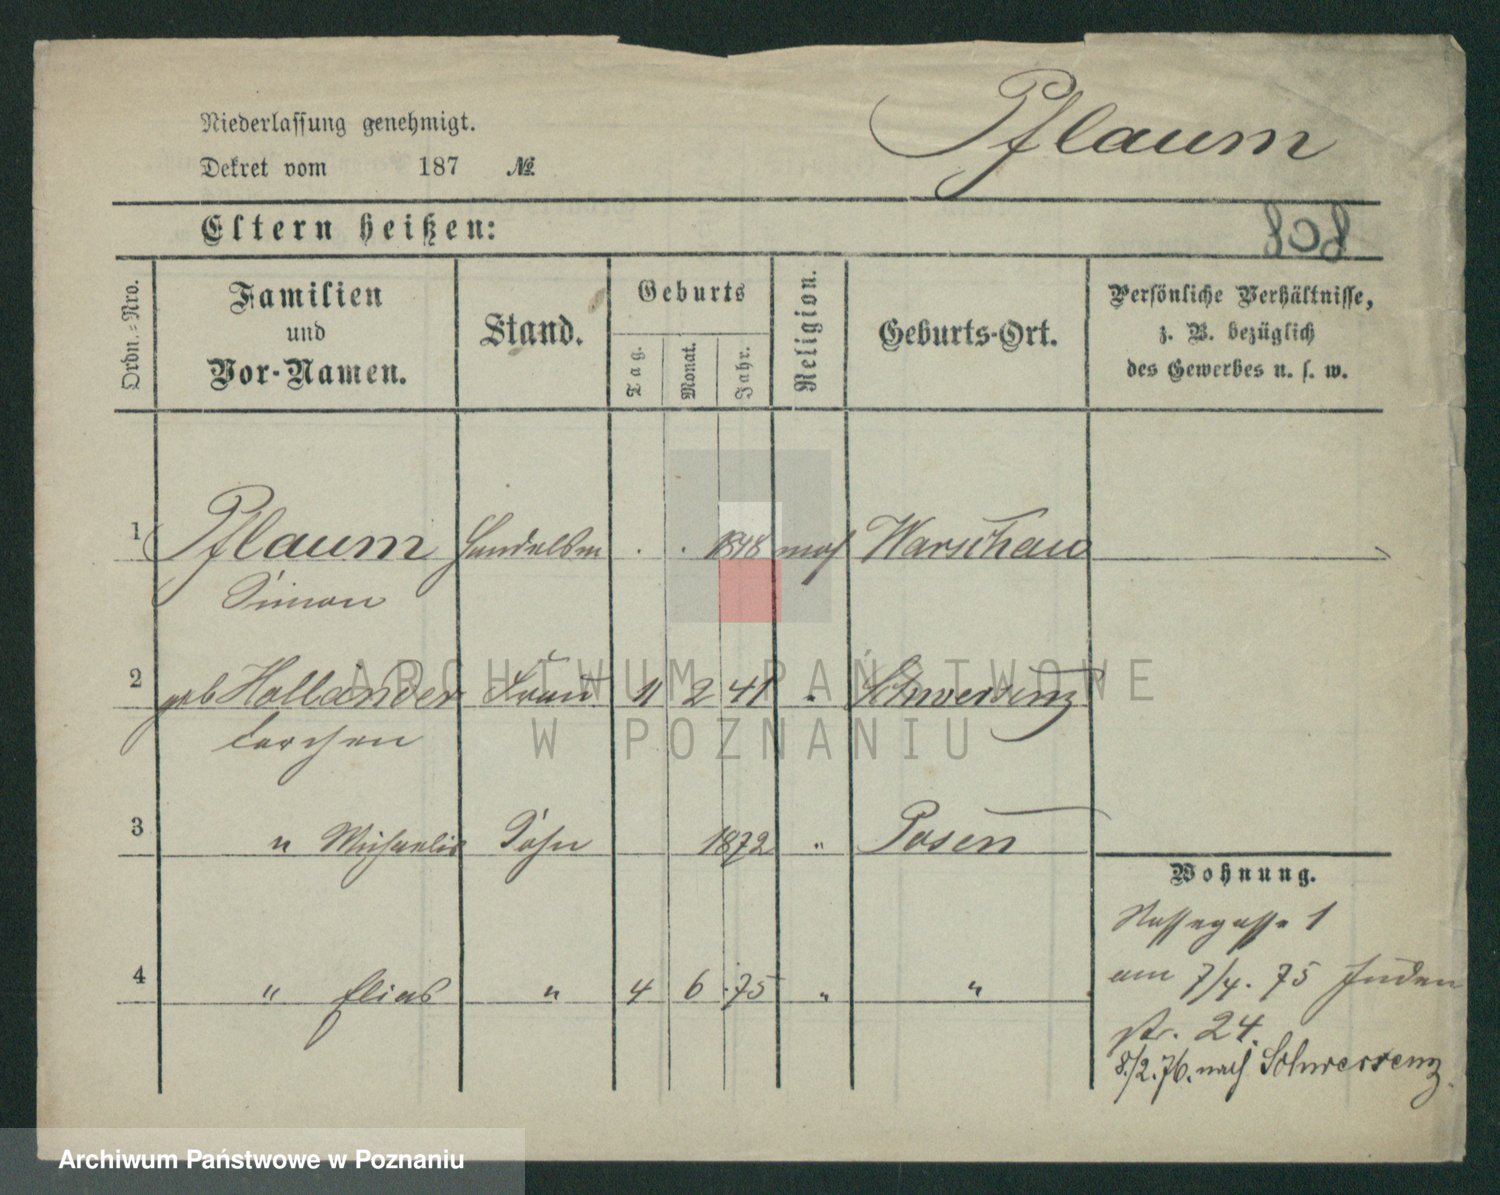 Pflaum
Niederlassung genehmigt.
Dekret vom 187 №
Eltern heißen:
Ordn.-Nro.
Familien
und
Vor-Namen.
Stand.
Geburts
Tag.
Monat.
Jahr.
Religion.
Geburts-Ort.
Persönliche Verhältnisse,
z. B. bezüglich
des Gewerbes u. s. w.
1 Pflaum Handelsm . . 1848 mos Warschau
Simon
2 geb Hollander Frau 11 2 41 " Schwersenz
Lorchen
3 " Michaelis Sohn 1872 " Posen
Wohnung.
Nassegasse 1
4 " Elias " 4 6 75 " "
am 7/4. 75 Juden
str. 24.
8./2.76. nach Schwersenz.
ARCHIWUM PAŃSTWOWE
W POZNANIU
Archiwum Państwowe w Poznaniu